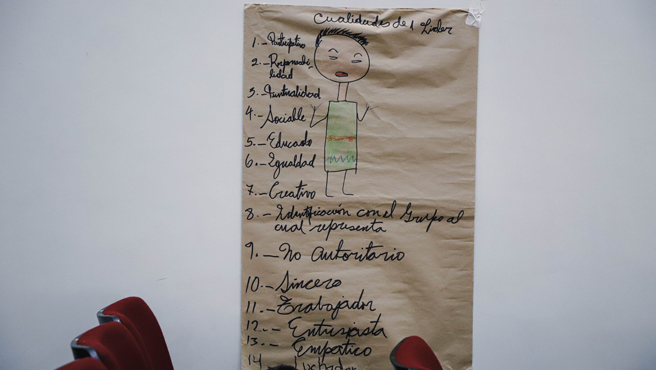 Cualidades de 1 Lider
1.- Participativo
2.- Responsabi-
lidad
3.- Puntualidad
4.- Sociable
5.- Educado
6.- Igualdad
7.- Creativo
8.- Identificación con el Grupo al
cual representa
9.- No Autoritario
10.- Sincero
11.- Trabajador
12.- Entusiasta
13.- Empático
14 Luchador